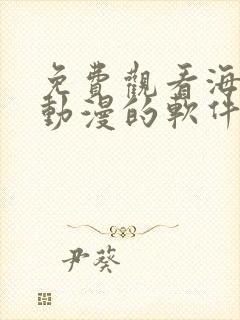 免費觀看海
動漫的軟件
尹葵